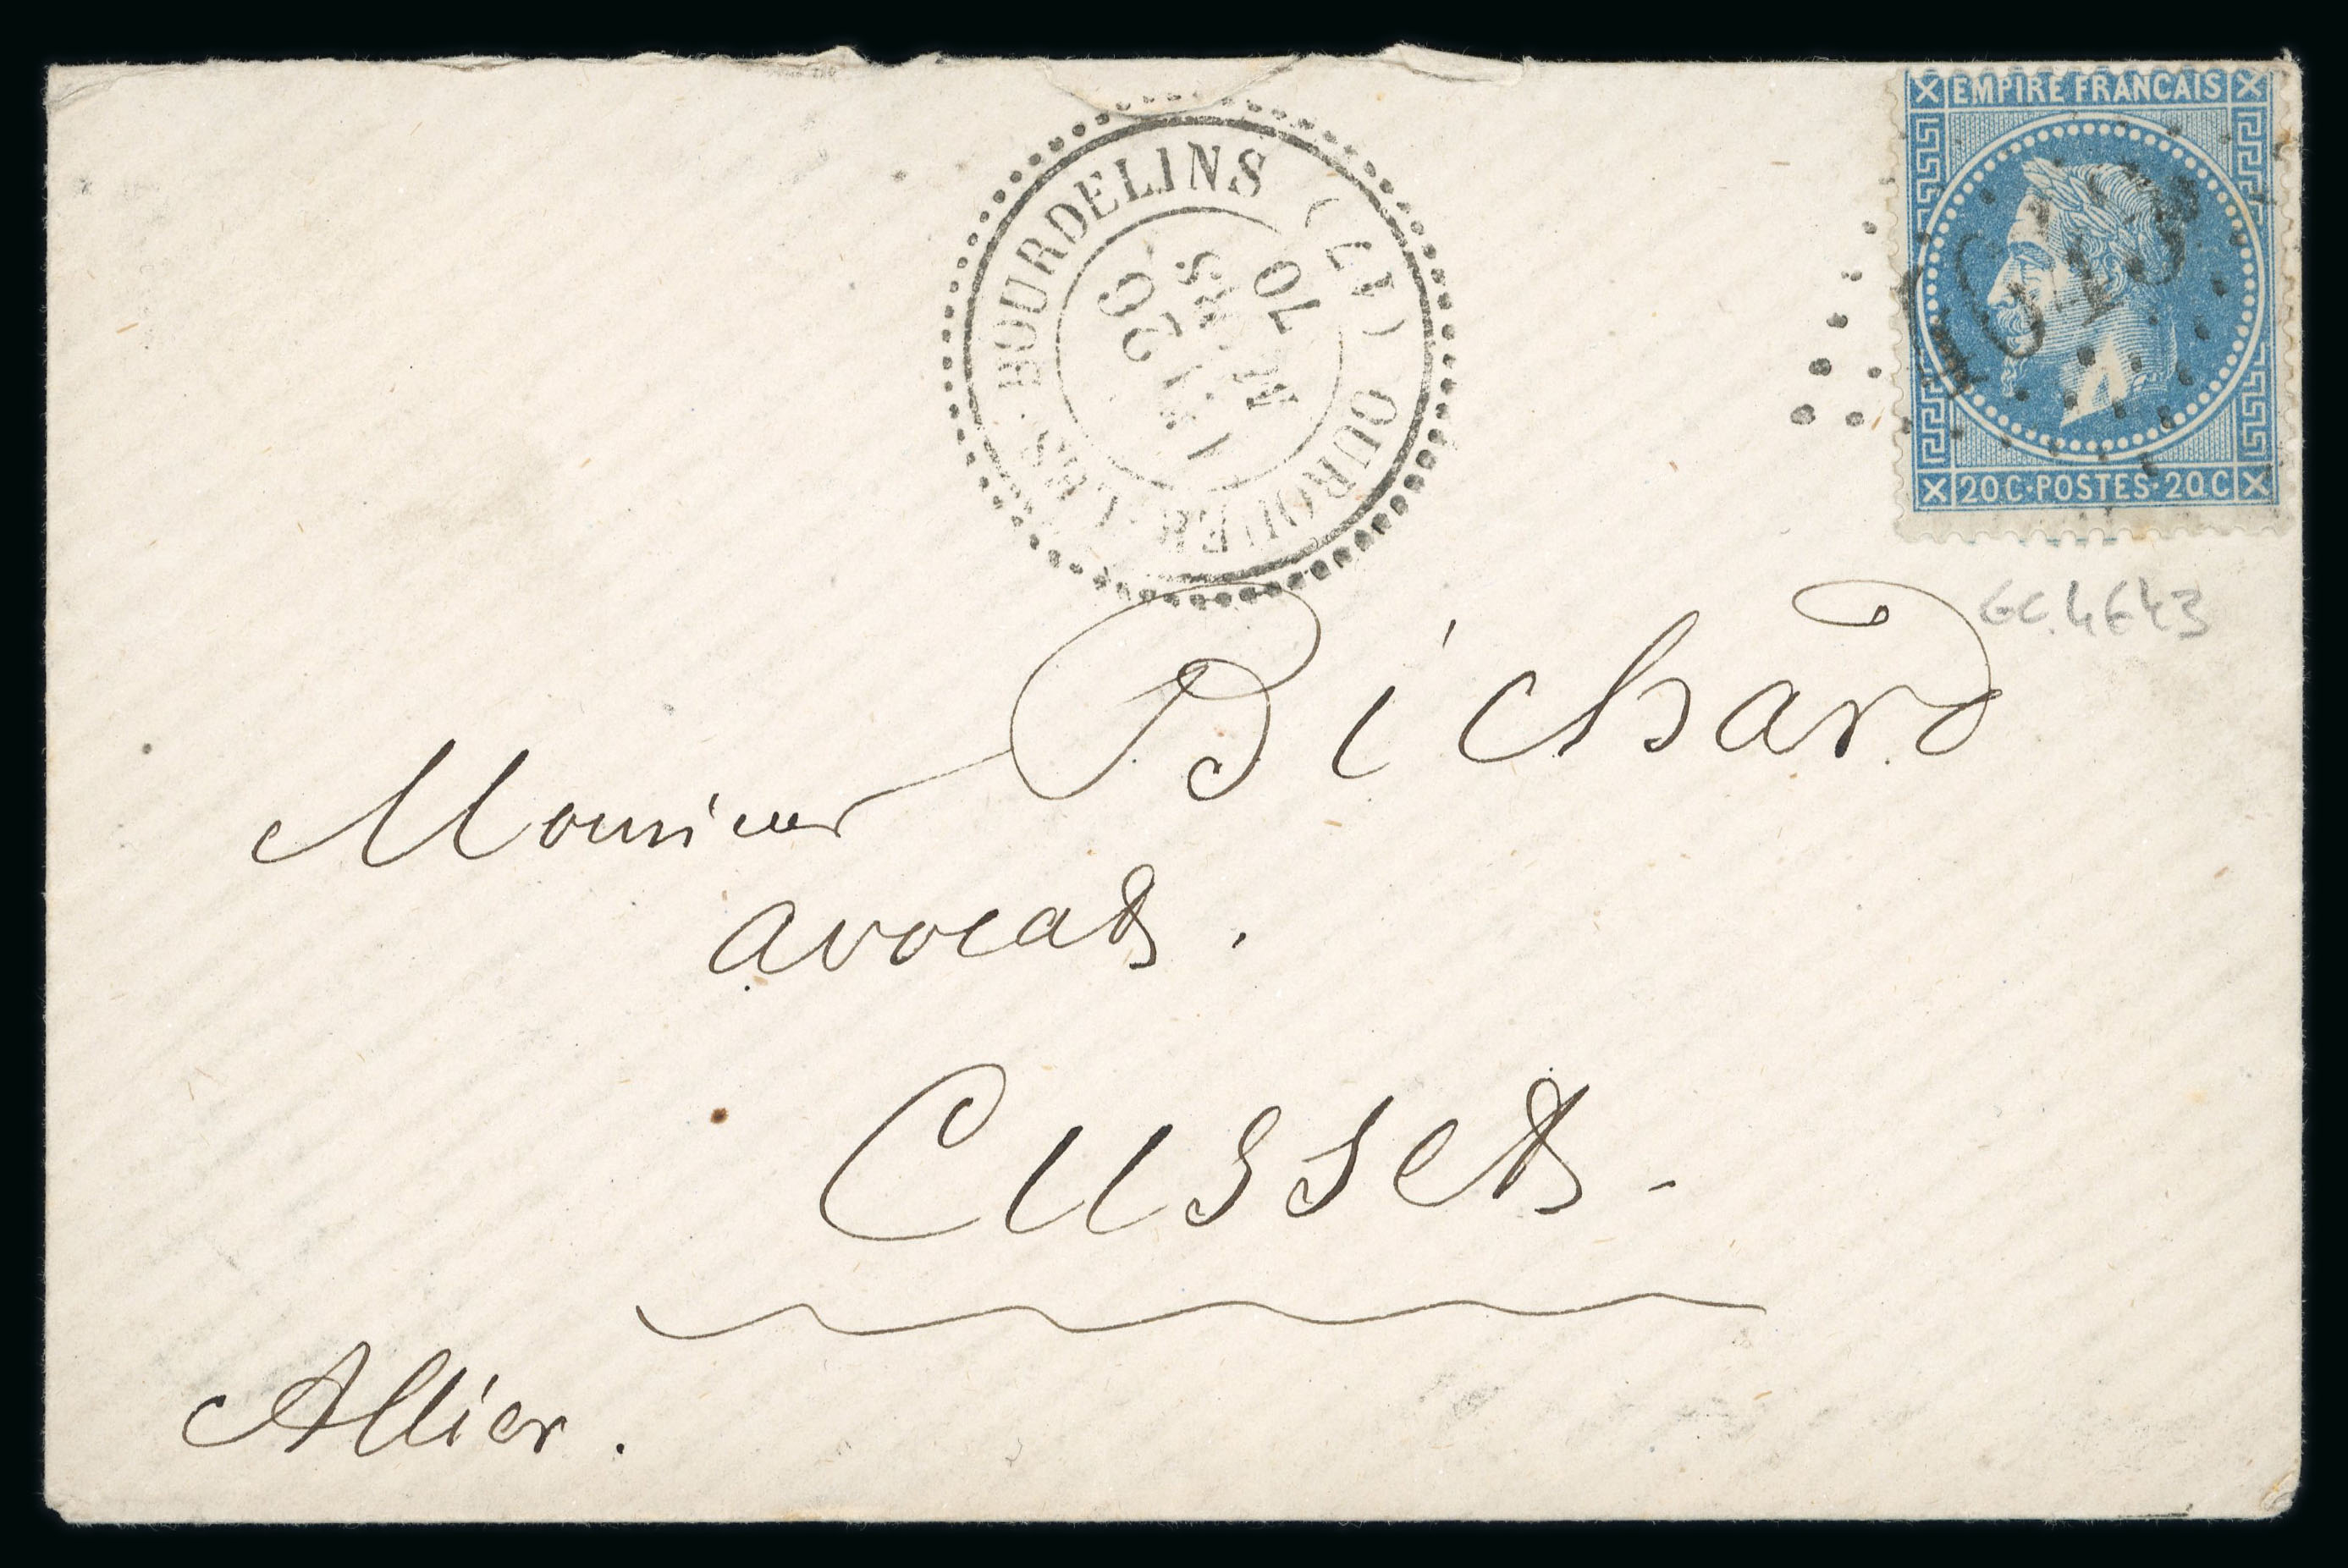 EMPIRE FRANCAIS
20C·POSTES·20C
4643
OUROUER-LES-BOURDELINS (17)
26
MARS
70
GC 4643
Monsieur Bichard
avocat.
Cusset.
Allier.